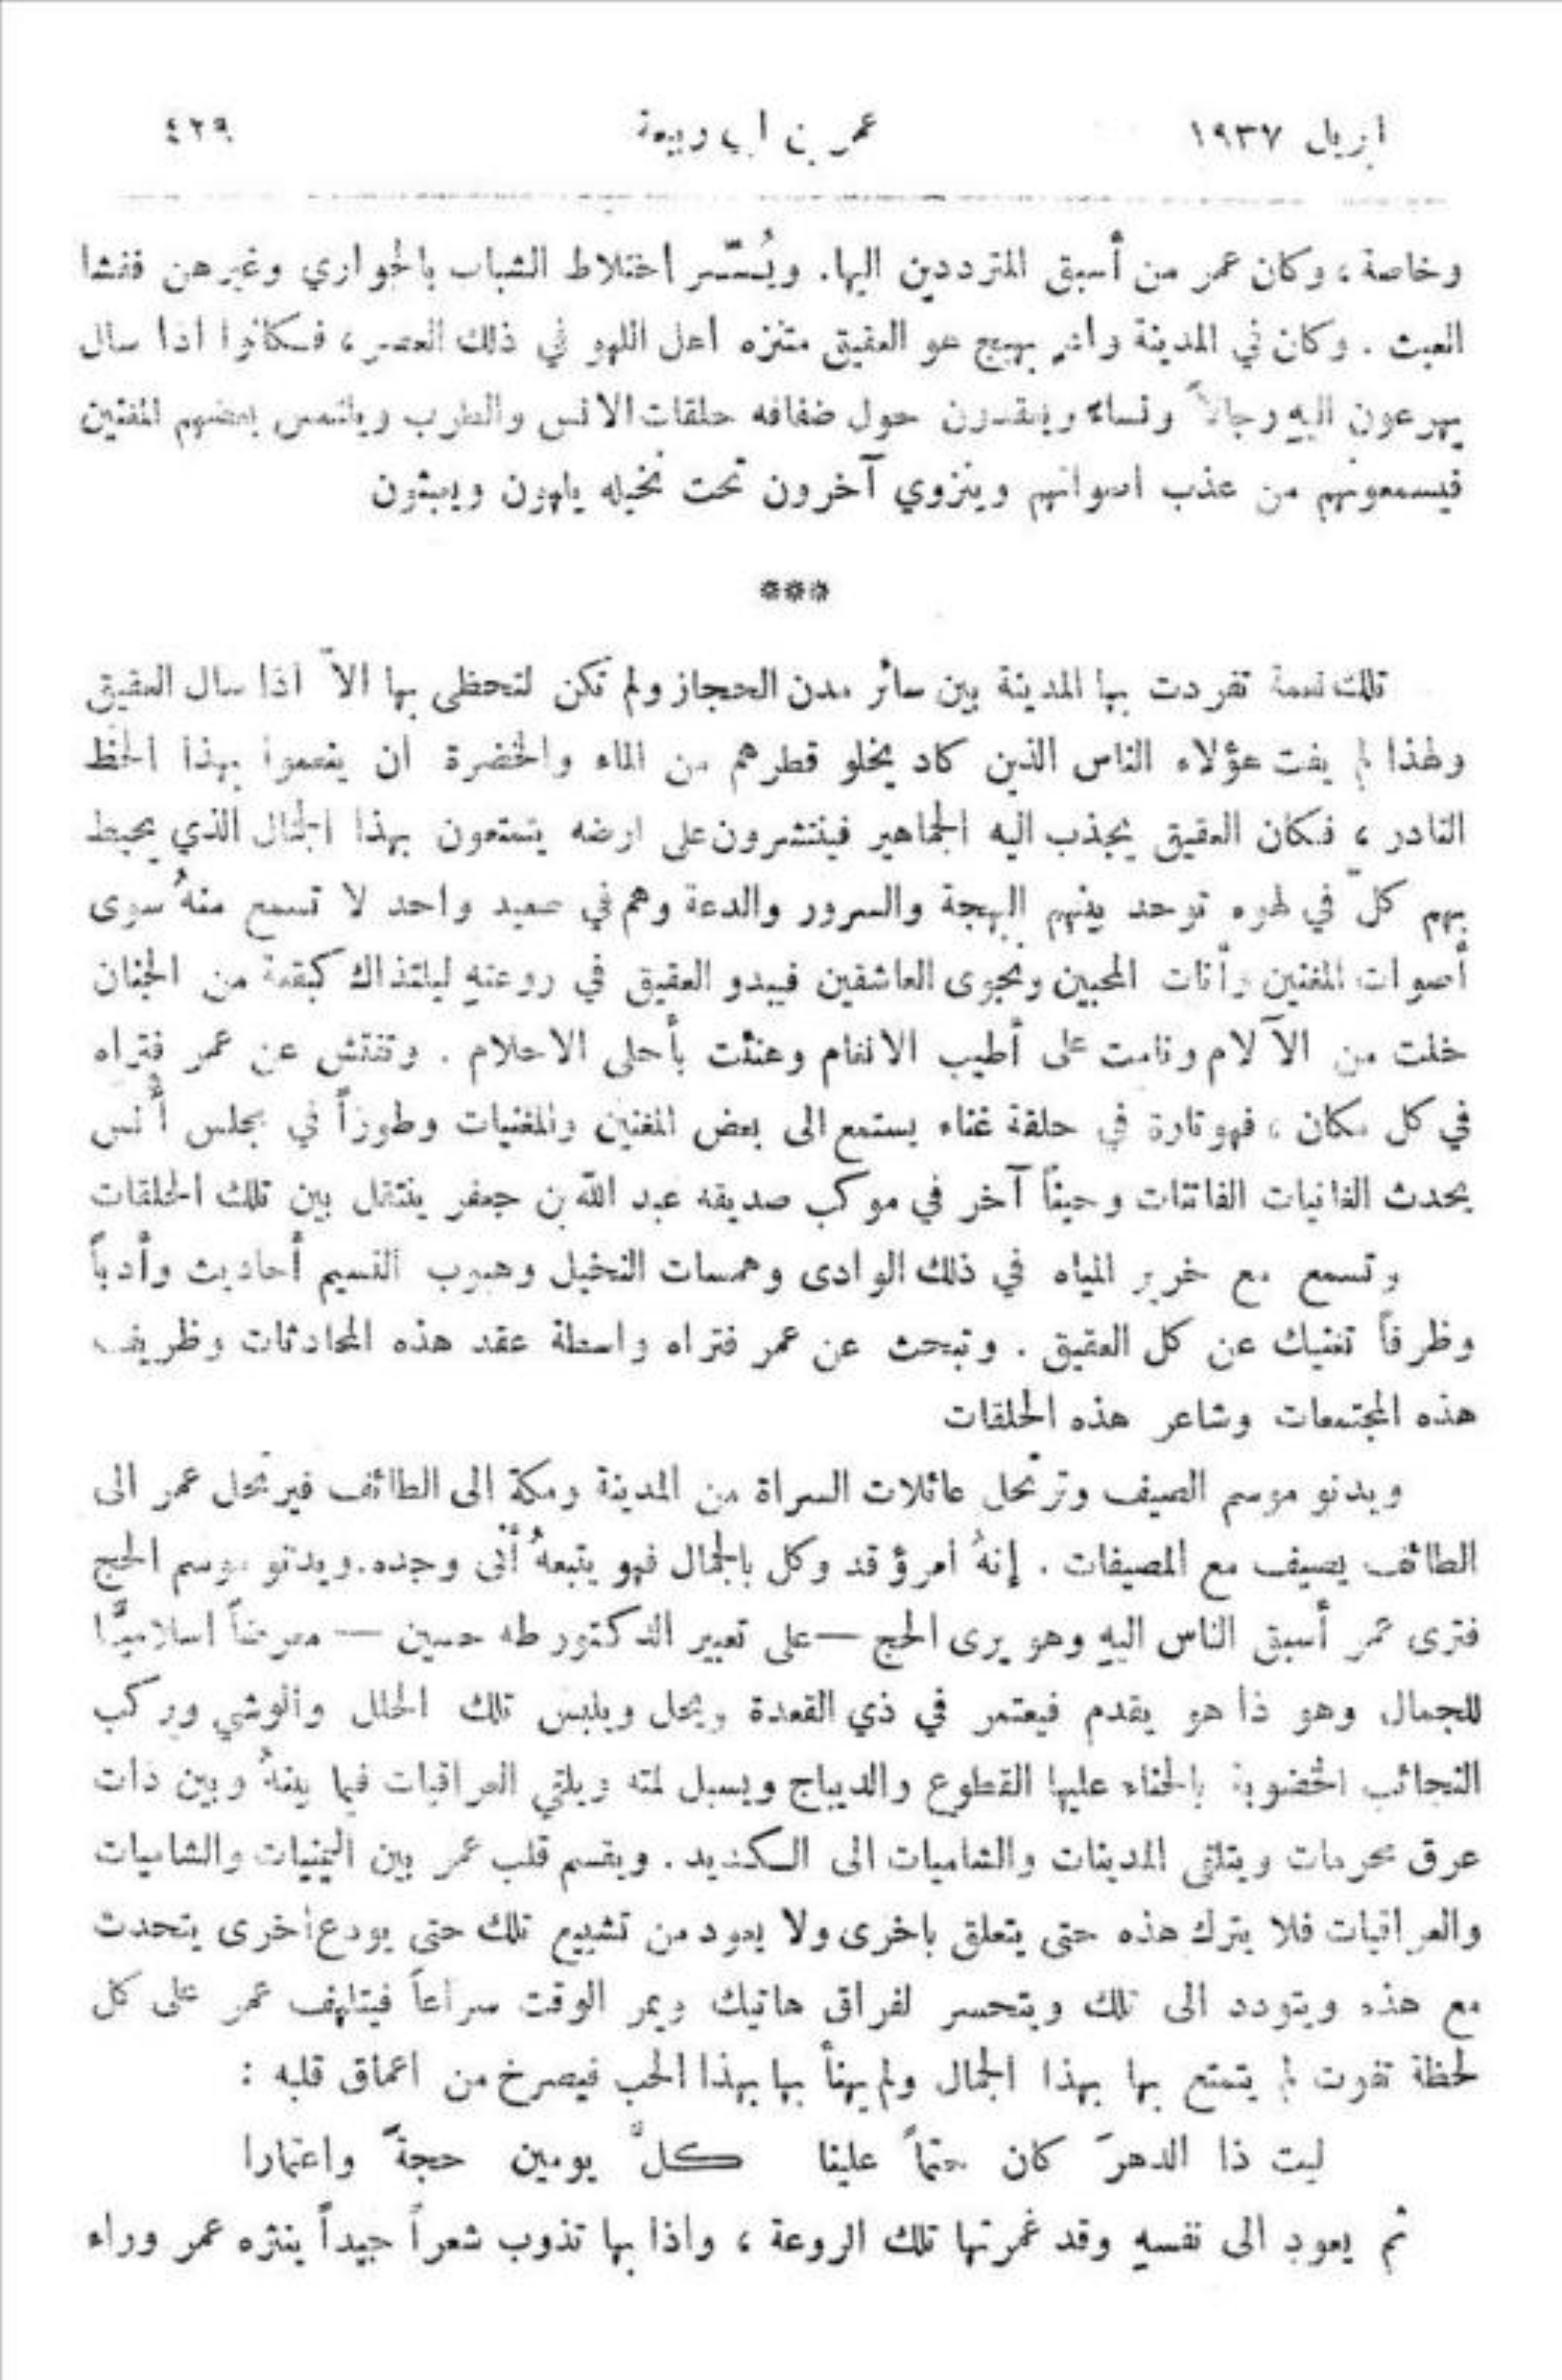 ابريل ١٩٣٧
عمر بن ابي ربيعة
٤٢٩
وخاصة ، وكان عمر من أسبق المترددين اليها . ويُسّر اختلاط الشباب بالجواري وغيرهن ففشا
العبث . وكان في المدينة وادٍ بهيج هو العقيق متنزه اهل اللهو في ذلك العصر ، فكانوا اذا سال
يهرعون اليهِ رجالاً ونساءً ويعقدون حول ضفافه حلقات الانس والطرب ويلتمس بعضهم المغنين
فيسمعونهم من عذب اصواتهم وينزوي آخرون تحت نخيله يلهون ويعبثون
***
تلك نعمة تفردت بها المدينة بين سائر مدن الحجاز ولم تكن لتحظى بها الاّ اذا سال العقيق
ولهذا لم يفت هؤلاء الناس الذين كاد يخلو قطرهم من الماء والخضرة ان ينعموا بهذا الحظ
النادر ، فكان العقيق يجذب اليه الجماهير فينتشرون على ارضه يتمتعون بهذا الجمال الذي يحيط
بهم كلّ في لهوه توحد بينهم البهجة والسرور والدعة وهم في صعيد واحد لا تسمع منهُ سوى
أصوات المغنين وأنات المحبين ونجوى العاشقين فيبدو العقيق في روعتهِ ليلتذاك كبقعة من الجنان
خلت من الآلام ونامت على أطيب الانغام وهنئت بأحلى الاحلام . وتفتش عن عمر فتراه
في كل مكان ، فهو تارة في حلقة غناء يستمع الى بعض المغنين والمغنيات وطوراً في مجلس أُنس
يحدث الغانيات الفاتنات وحيناً آخر في موكب صديقه عبد الله بن جعفر ينتقل بين تلك الحلقات
وتسمع مع خرير المياه في ذلك الوادى وهمسات النخيل وهبوب النسيم أحاديث وأدباً
وظرفاً تغنيك عن كل العقيق . وتبحث عن عمر فتراه واسطة عقد هذه المحادثات وظريف
هذه المجتمعات وشاعر هذه الحلقات
ويدنو موسم الصيف وترتحل عائلات السراة من المدينة ومكة الى الطائف فيرتحل عمر الى
الطائف يصيف مع المصيفات . إنهُ امرؤ قد وكل بالجمال فهو يتبعهُ أنّى وجده . ويدنو موسم الحج
فترى عمر أسبق الناس اليهِ وهو يرى الحج — على تعبير الدكتور طه حسين — معرضاً اسلاميًّا
للجمال وهو ذا هو يقدم فيعتمر في ذي القعدة ويحل ويلبس تلك الحلل والوشي ويركب
النجائب المخضوبة بالحناء عليها القطوع والديباج ويسبل لمته ويلقي العراقيات فيما بينهُ وبين ذات
عرق محرمات ويتلقى المدينات والشاميات الى الكديد . ويقسم قلب عمر بين اليمنيات والشاميات
والعراقيات فلا يترك هذه حتى يتعلق باخرى ولا يعود من تشييع تلك حتى يودع أخرى يتحدث
مع هذه ويتودد الى تلك ويتحسر لفراق هاتيك ويمر الوقت سراعاً فيتلهف عمر على كل
لحظة تفوت لم يتمتع بها بهذا الجمال ولم يهنأ بها بهذا الحب فيصرخ من اعماق قلبه :
ليت ذا الدهرَ كان حتماً علينا كلَّ يومين حجةً واعتمارا
ثم يعود الى نفسهِ وقد غمرتها تلك الروعة ، واذا بها تذوب شعراً جيداً ينثره عمر وراء